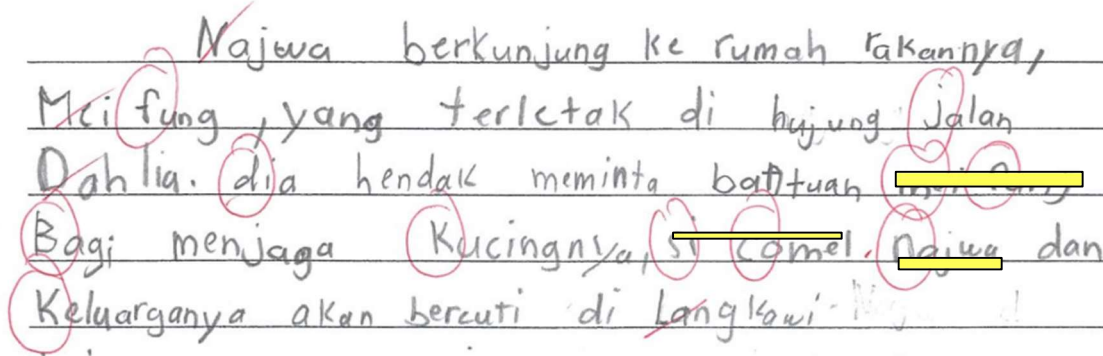 Najwa berkunjung ke rumah rakannya,
Mei fung, yang terletak di hujung jalan
Dahlia. dia hendak meminta bantuan
Bagi menjaga Kucingnya, si comel. najwa dan
Keluarganya akan bercuti di Langkawi.